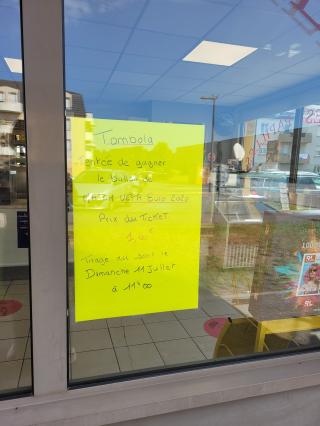 Tombola
Tentez de gagner
le ballon de
MATCH UEFA Euro 2020
Prix du Ticket
1,00€
Tirage au sort le
Dimanche 11 Juillet
à 11h00